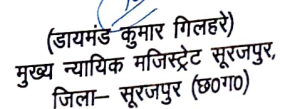 (डायमंड कुमार गिलहरे)
मुख्य न्यायिक मजिस्ट्रेट सूरजपुर,
जिला– सूरजपुर (छ०ग०)